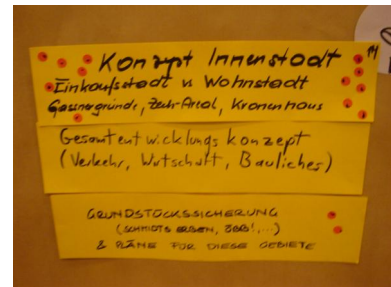 Konzept Innenstadt
Einkaufsstadt vs Wohnstadt
Gassnergründe, Zech-Areal, Kronenhaus
Gesamtentwicklungskonzept
(Verkehr, Wirtschaft, Bauliches)
GRUNDSTÜCKSSICHERUNG
(SCHMIDTS ERBEN, ÖBB!,...)
& PLÄNE FÜR DIESE GEBIETE